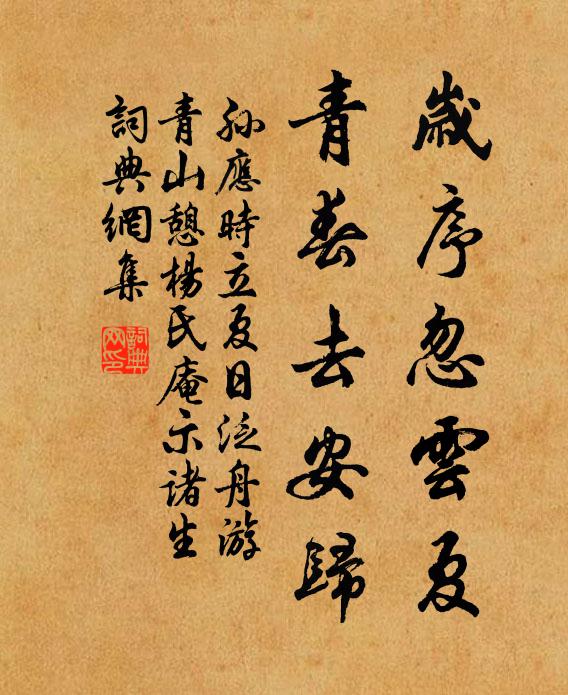 歲序忽雲夏
青春去安歸
孫應時立夏日泛舟游
青山憩楊氏庵示諸生
詞典網集
詞典网印